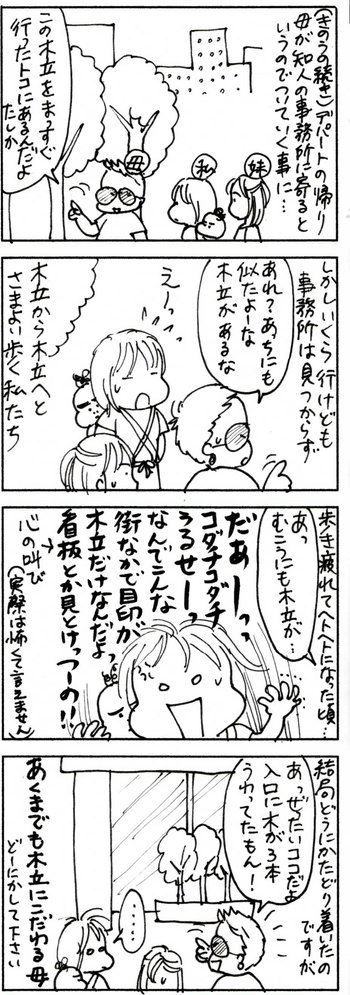 (きのうの続き)デパートの帰り
母が知人の事務所に寄ると
いうのでついていく事に…
妹
私
母
この木立をまっすぐ
行ったトコにあるんだよ
たしか
しかしいくら行けども
事務所は見つからず
あれ?あちにも
似たよーな
木立があるな
えーっ
木立から木立へと
さまよい歩く私たち
歩き疲れてヘトヘトになった頃…
あっ
むこうにも木立が…
だぁーーっっ
コダチコダチ
うるせーっ
なんでこんな
街なかで目印が
木立だけなんだよっ
看板とか見とけっつーの!!
心の叫び
(実際は怖くて言えません)
結局どうにかたどり着いたの
ですが
あっぜったいココだよ
入口に木が3本
うわってたもん!
……
あくまでも木立にこだわる母
どーにかして下さい